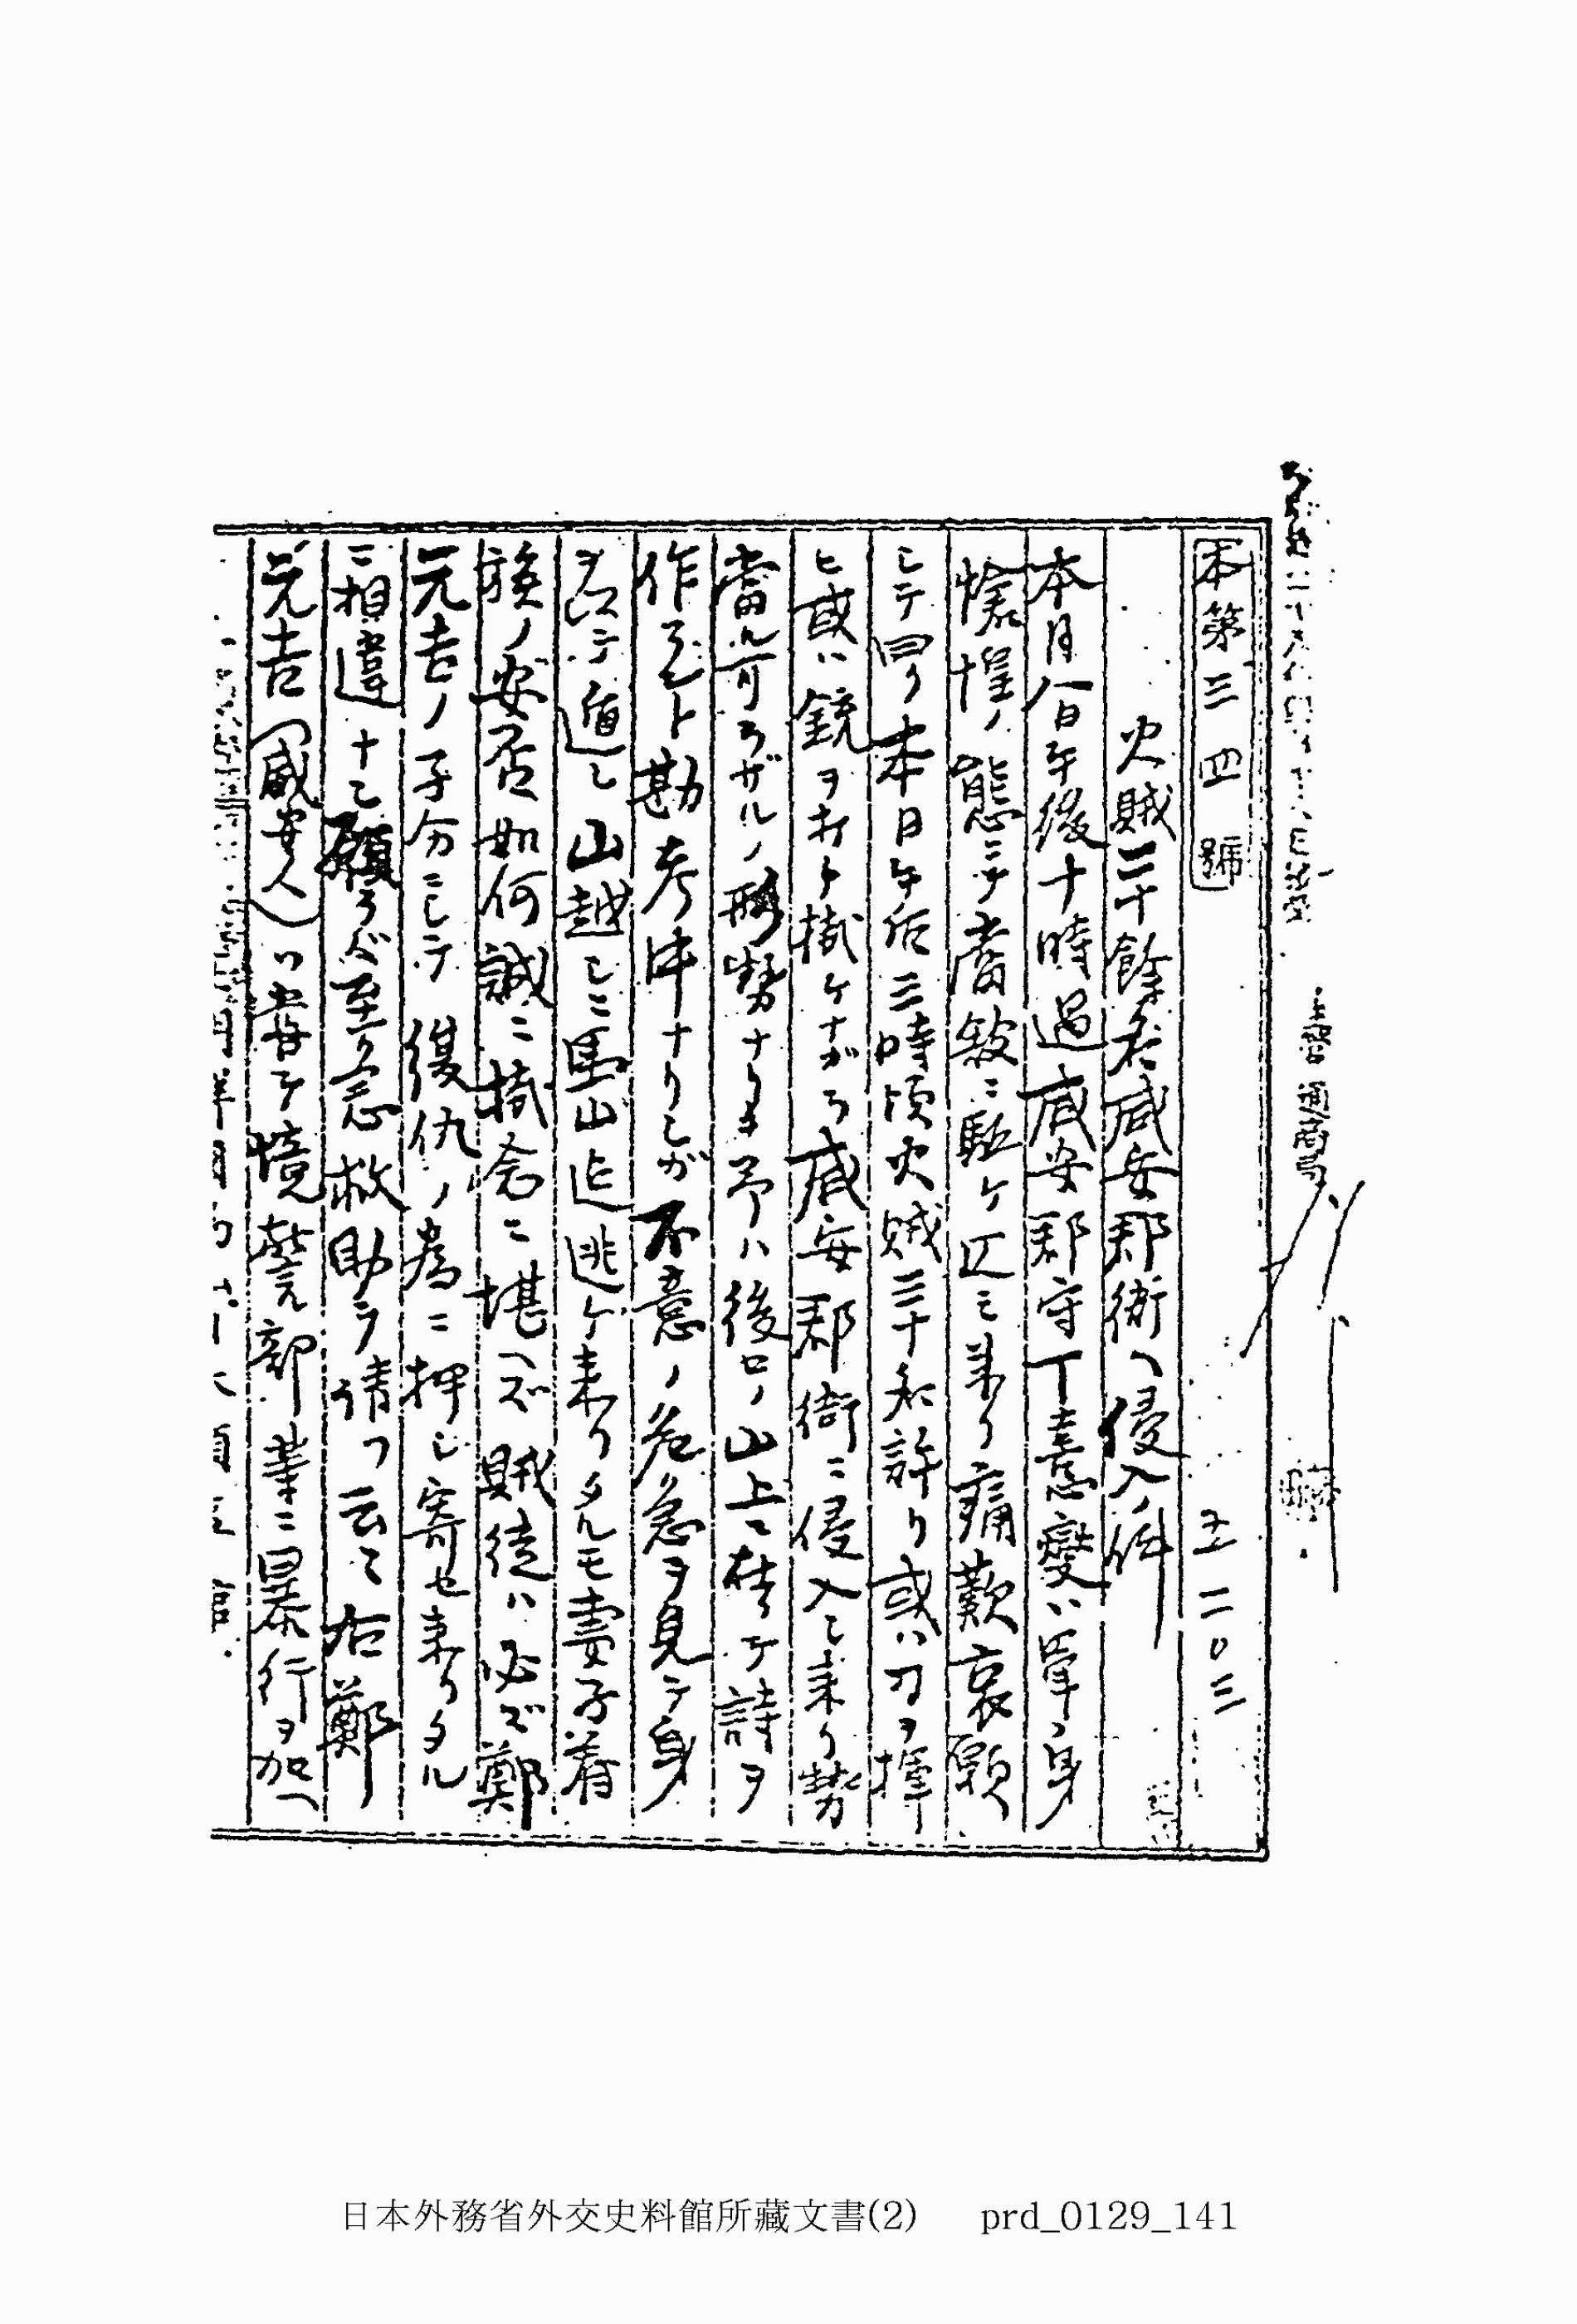 上書 通商局
本第三四號 五二〇三
火賊三十餘名咸安郡衙ヘ侵入ノ件
本月八日午後十時過咸安郡守丁憙燮ハ單身
惶ノ態ニテ當館ニ駈ケ込ミ来リ痛歎哀願
シテ曰ク本日午后三時頃火賊三十名許リ或ハ刀ヲ揮
ヒ或ハ銃ヲ打ト掛ケナガラ咸安郡衙ニ侵入シ来リ勢
當ル可ラザルノ形勢ナリキ予ハ後ロノ山上ニ在テ詩ヲ
作ラムト勘考中ナリシガ不意ノ危急ヲ見テ身
ヲ以テ遁レ山越シニ馬山迄逃ケ来リタルモ妻子眷
族ノ安否如何誠ニ掛念ニ堪ヘズ賊徒ハ必ズ鄭
元吉ノ子分ニシテ復仇ノ為ニ押シ寄セ来リタル
ニ相違ナシ願クバ至急救助ヲ請フ云々右鄭
元吉(咸安人)ハ嘗テ境警部輩ニ暴行ヲ加ヘ
日本外務省外交史料館所藏文書(2) prd_0129_141